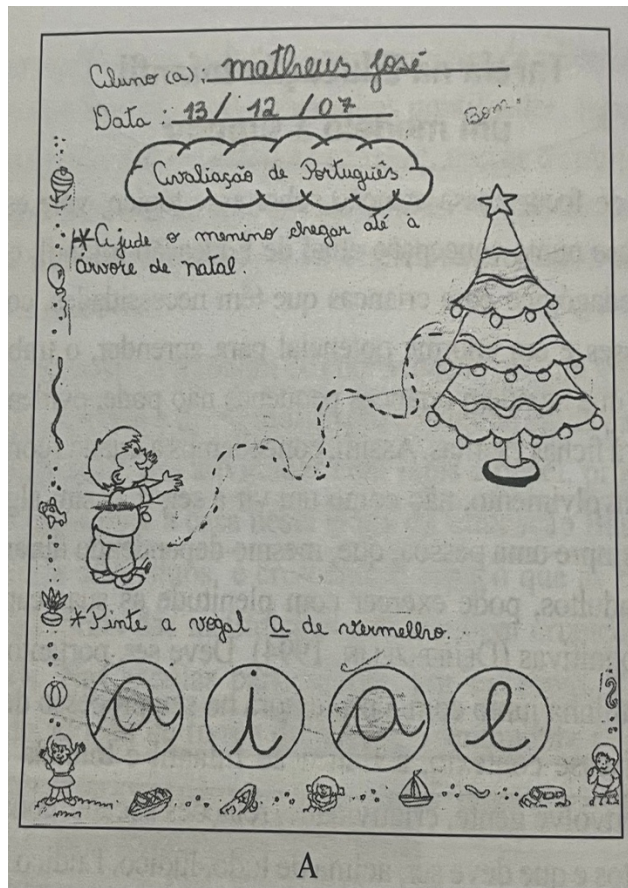 Aluno (a): matheus José
Data: 13/ 12 /07
Bom!
Avaliação de Português
*Ajude o menino chegar até à
árvore de natal.
*Pinte a vogal a de vermelho.
a i a e
A